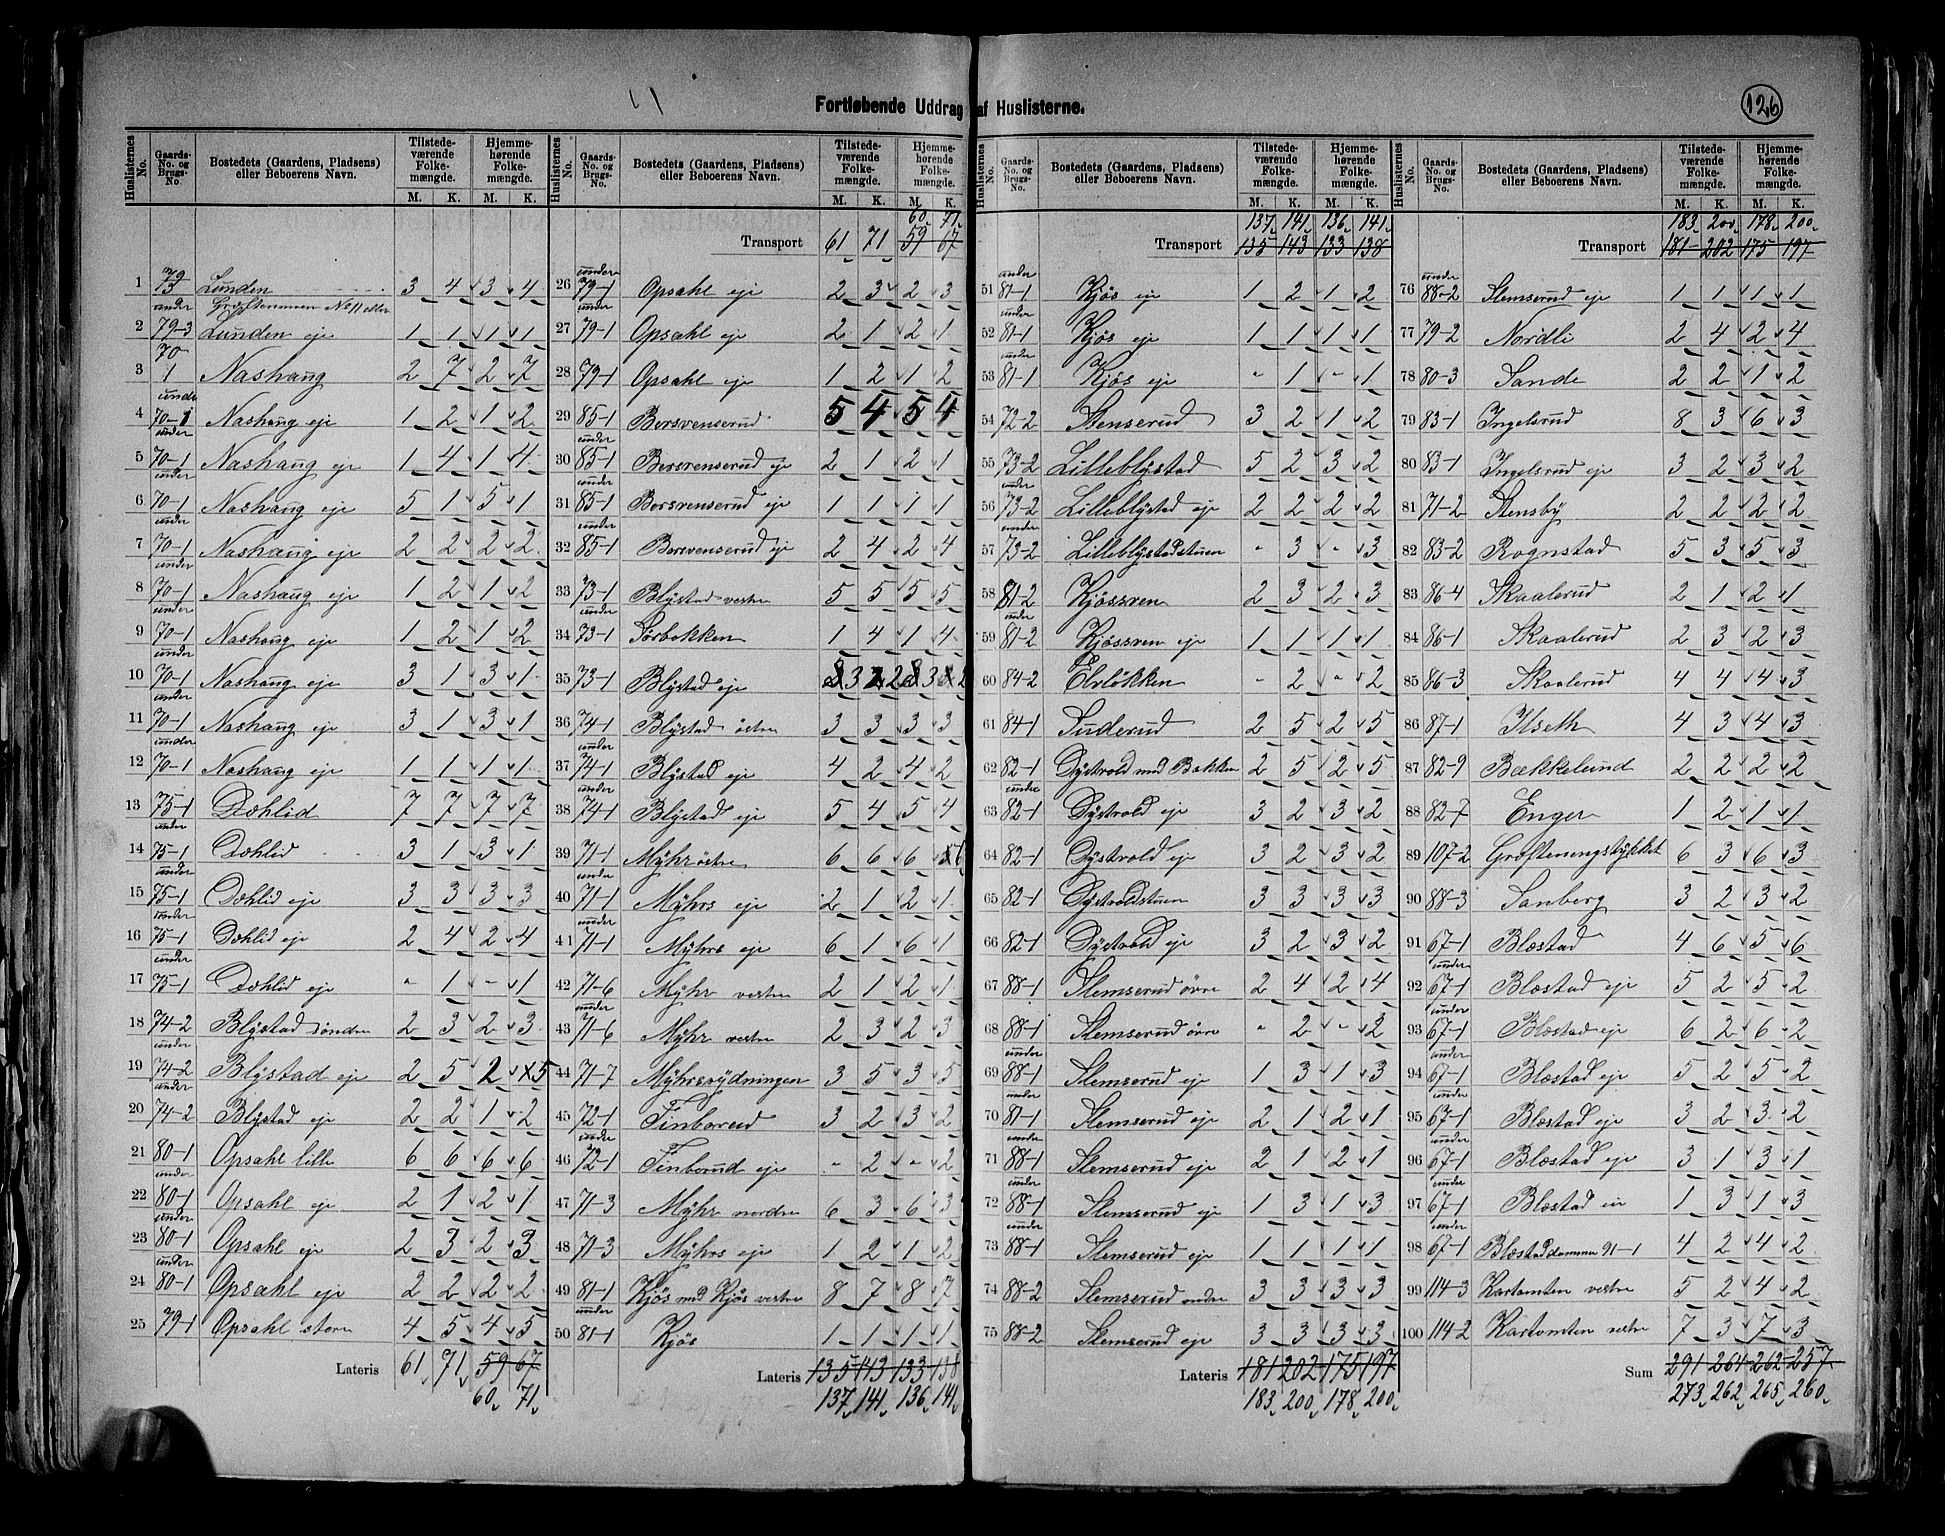 Fortløbende Uddrag af Huslisterne.
126
Huslisternes No. | Gaards-No. og Brugs-No. | Bostedets (Gaardens, Pladsens) eller Beboerens Navn. | Tilstedeværende Folkemængde. M. K. | Hjemmehørende Folkemængde. M. K.
1 | Lunden | 3 4 3 4
2 | under 79-3 | Lunden eje | 1 1 1 1
3 | 70 1 | Nashaug | 2 7 2 7
4 | under 70-1 | Nashaug eje | 1 2 1 2
5 | under 70-1 | Nashaug eje | 1 4 1 4
6 | under 70-1 | Nashaug eje | 5 1 5 1
7 | under 70-1 | Nashaug eje | 2 2 2 2
8 | under 70-1 | Nashaug eje | 1 2 1 2
9 | under 70-1 | Nashaug eje | 1 2 1 2
10 | under 70-1 | Nashaug eje | 3 1 3 1
11 | under 70-1 | Nashaug eje | 3 1 3 1
12 | under 70-1 | Nashaug eje | 1 1 1 1
13 | 75-1 | Dæhlid | 7 7 7 7
14 | under 75-1 | Dæhlid | 3 1 3 1
15 | under 75-1 | Dæhlid eje | 3 3 3 3
16 | under 75-1 | Dæhlid eje | 2 4 2 4
17 | under 75-1 | Dæhlid eje | " 1 " 1
18 | 74-2 | Blystad søndre | 2 3 2 3
19 | under 74-2 | Blystad eje | 2 5 2 5
20 | under 74-2 | Blystad eje | 2 2 1 2
21 | 80-1 | Opsahl lille | 6 6 6 6
22 | under 80-1 | Opsahl eje | 2 1 2 1
23 | under 80-1 | Opsahl eje | 2 3 2 3
24 | under 80-1 | Opsahl eje | 2 2 2 2
25 | 79-1 | Opsahl store | 4 5 4 5
Lateris 61 71 59 67
60 71
60 71
Transport 61 71 59 67
26 | under 79-1 | Opsahl eje | 2 3 2 3
27 | under 79-1 | Opsahl eje | 2 1 2 1
28 | 79-1 | Opsahl eje | 1 2 1 2
29 | 85-1 | Borsvenserud | 5 4 5 4
30 | under 85-1 | Borsvenserud eje | 2 1 2 1
31 | under 85-1 | Borsvenserud eje | 1 1 1 1
32 | under 85-1 | Borsvenserud eje | 2 4 2 4
33 | 73-1 | Blystad vestre | 5 5 5 5
34 | under 73-1 | Sørbokken | 1 4 1 4
35 | 73-1 | Blystad eje | 3 2 3 2
36 | 74-1 | Blystad østre | 3 3 3 3
37 | under 74-1 | Blystad eje | 4 2 4 2
38 | under 74-1 | Blystad eje | 5 4 5 4
39 | 71-1 | Myhr østre | 6 6 6 6
40 | under 71-1 | Myhrs eje | 2 1 2 1
41 | under 71-1 | Myhrs eje | 6 1 6 1
42 | 71-6 | Myhr vestre | 2 1 2 1
43 | under 71-6 | Myhr vestre | 2 3 2 3
44 | 71-7 | Myhrsrydningen | 3 5 3 5
45 | 72-1 | Finborud | 3 2 3 2
46 | under 72-1 | Finborud eje | " 2 " 2
47 | 71-3 | Myhr nordre | 6 3 6 3
48 | 71-3 | Myhrs eje | 1 2 1 2
49 | 81-1 | Kjøs med Kjøs vestre | 8 7 8 7
50 | under 81-1 | Kjøs | 1 1 1 1
Lateris 135 143 133 138
137 141 136 141
137 141 136 141
Transport 135 143 133 138
51 | under 81-1 | Kjøs eje | 1 2 1 2
52 | under 81-1 | Kjøs eje | 1 1 1 1
53 | under 81-1 | Kjøs eje | " 1 " 1
54 | 72-2 | Stenserud | 3 2 1 2
55 | 73-2 | Lilleblystad | 5 2 3 2
56 | under 73-2 | Lilleblystad eje | 2 2 2 2
57 | under 73-2 | Lilleblystadstuen | " 3 " 3
58 | 81-2 | Kjøssven | 2 3 2 3
59 | under 81-2 | Kjøssven eje | 1 1 1 1
60 | 84-2 | Elvløkken | " 2 " 2
61 | 84-1 | Suderud | 2 5 2 5
62 | 82-1 | Dystvold med Bakken | 2 5 2 5
63 | under 82-1 | Dystvold eje | 3 2 3 2
64 | 82-1 | Dystvold eje | 3 2 3 2
65 | 82-1 | Dystvoldstuen | 3 3 3 3
66 | 82-1 | Dystvold eje | 3 2 3 2
67 | 88-1 | Slemserud øvre | 2 4 2 4
68 | 88-1 | Slemserud øvre | " 2 " 2
69 | under 88-1 | Slemserud eje | 1 3 1 3
70 | under 81-1 | Slemserud eje | 2 1 2 1
71 | under 88-1 | Slemserud eje | 2 1 2 1
72 | under 88-1 | Slemserud eje | 1 3 1 3
73 | under 88-1 | Slemserud eje | 1 1 1 1
74 | 88-2 | Slemserud nedre | 3 3 3 3
75 | 88-2 | Slemserud eje | 3 3 3 3
Lateris 181 202 175 197
183 200 178 200
183 200 178 200
Transport 181 202 175 197
76 | under 88-2 | Slemserud eje | 1 1 1 1
77 | 79-2 | Nordli | 2 4 2 4
78 | 80-3 | Sande | 2 2 1 2
79 | 83-1 | Ingelsrud | 8 3 6 3
80 | 83-1 | Ingelsrud eje | 3 2 3 2
81 | 71-2 | Stensby | 2 2 2 2
82 | 83-2 | Rognstad | 5 3 5 3
83 | 86-4 | Skaalerud | 2 1 2 1
84 | 86-1 | Skaalerud | 2 3 2 3
85 | 86-3 | Skaalerud | 4 4 4 3
86 | 87-1 | Ilseth | 4 3 4 3
87 | 82-9 | Bækkelund | 2 2 2 2
88 | 82-7 | Enger | 1 2 1 1
89 | 107-2 | Grøfteningstykket | 6 3 6 3
90 | 88-3 | Sanberg | 3 2 3 2
91 | 67-1 | Blæstad | 4 6 5 6
92 | under 67-1 | Blæstad eje | 5 2 5 2
93 | under 67-1 | Blæstad eje | 6 2 6 2
94 | under 67-1 | Blæstad eje | 5 2 5 2
95 | under 67-1 | Blæstad eje | 3 2 3 2
96 | under 67-1 | Blæstad eje | 3 1 3 1
97 | under 67-1 | Blæstad eie | 1 3 1 3
98 | under 67-1 | Blæstaddammen 91-1 | 4 2 4 2
99 | 114-3 | Kartomten vestre | 5 2 4 2
100 | 114-2 | Kartomten vestre | 7 3 7 3
Sum 291 264 262 257
273 262 265 260